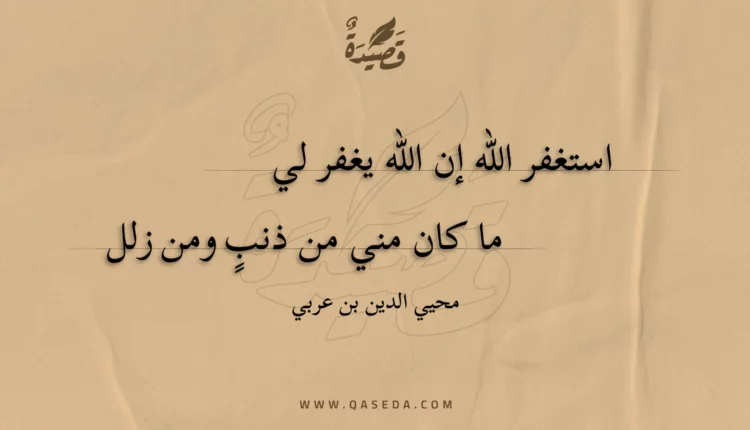 قَصِيْدَةٌ
استغفر الله إن الله يغفر لي
ما كان مني من ذنبٍ ومن زلل
محيي الدين بن عربي
WWW.QASEDA.COM